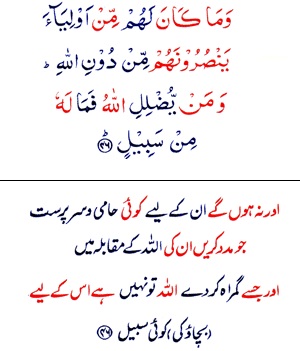 وَمَا كَانَ لَهُمْ مِّنْ اَوْلِيَآءَ
يَنْصُرُوْنَهُمْ مِّنْ دُوْنِ اللّٰهِ ؕ
وَ مَنْ يُّضْلِلِ اللّٰهُ فَمَا لَهٗ
مِنْ سَبِيْلٍ ؕ﴿۴۶﴾
اور نہ ہوں گے ان کے لیے کوئی حامی و سرپرست
جو مدد کریں ان کی اللہ کے مقابلہ میں
اور جسے گمراہ کردے اللہ تو نہیں ہے اس کے لیے
(بچاؤ کی) کوئی سبیل ﴿۴۶﴾